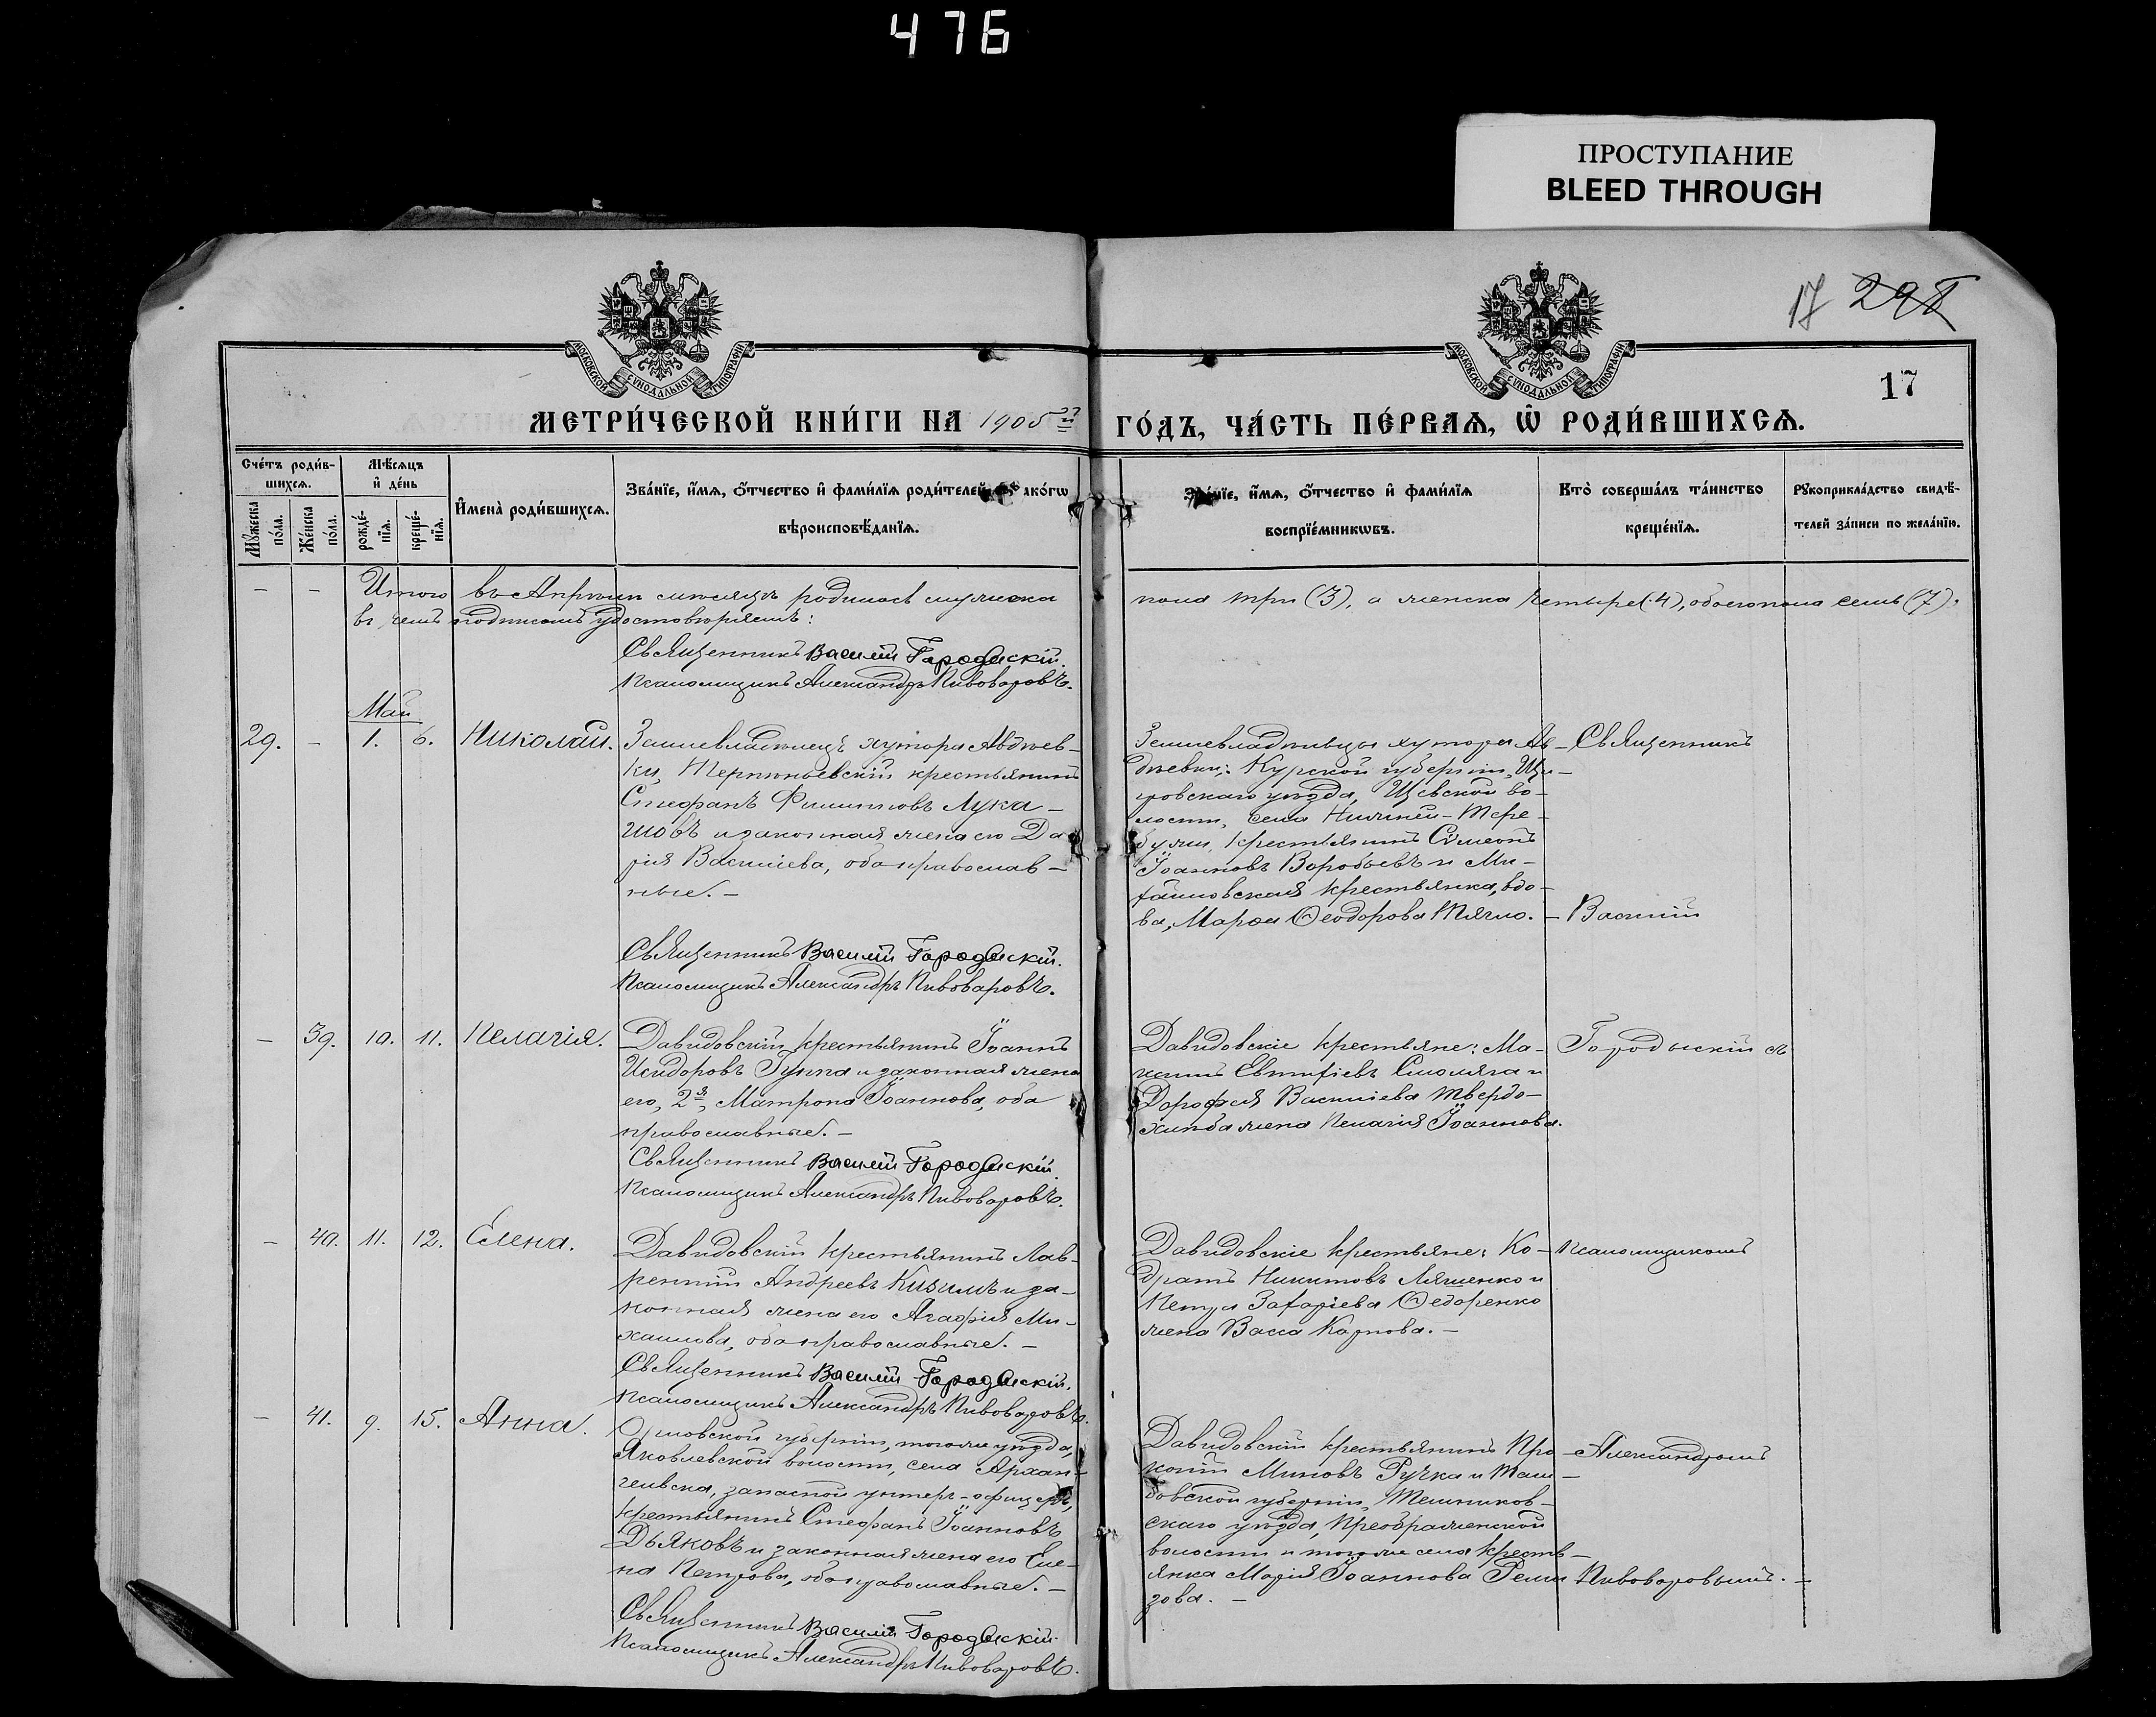 476
ПРОСТУПАНИЕ
BLEED THROUGH
17 298
17
МОСКОВСКОЙ СѴНОДАЛЬНОЙ ТИПОГРАФІИ
МОСКОВСКОЙ СѴНОДАЛЬНОЙ ТИПОГРАФІИ
МЕТРИ́ЧЕСКОЙ КНИ́ГИ НА 1905й ГО́ДЪ, ЧА́СТЬ ПЕ́РВАѦ, Ѡ҆ РОДИ́ВШИХСѦ.
Сче́тъ роди́в-
шихсѧ.
Мѣ́сѧцъ
и҆ де́нь
Мꙋ́жеска
по́ла.
Же́нска
по́ла.
рожде́-
нїѧ.
креще́-
нїѧ.
И҆мена̀ роди́вшихсѧ.
Зва́нїе, и҆́мѧ, ѻ҆́тчество и҆ фами́лїѧ роди́телей, ако́гѡ
вѣроисповѣ́данїѧ.
Зва́нїе, и҆́мѧ, ѻ҆́тчество и҆ фами́лїѧ
воспрїе́мникѡвъ.
Кто̀ соверша́лъ та́инство
креще́нїѧ.
Рꙋкоприкла́дство свидѣ́-
телей за́писи по жела́нїю.
– – Итого въ Апрѣлѣ мѣсяцѣ родилось мужеска пола три (3), а женска четыре (4), обоего пола семь (7).
въ чемъ подписомъ удостовѣряемъ:
Священникъ Василій Городыскій.
Псаломщикъ Александръ Пивоваровъ.
Май
29. – 1. 6. Николай. Землевладѣлецъ хутора Авдѣев-
ки, Терпѣньевскій крестьянинъ
Стефанъ Филипповъ Лука-
шовъ и законная жена его Да-
рія Васильева, оба православ-
ные. –
Священникъ Василій Городыскій.
Псаломщикъ Александръ Пивоваровъ.
Землевладѣльцы хутора Ав-
дѣевки: Курской губерніи, Щи-
гровскаго уѣзда, волости, села
крестьянинъ Сѵмеонъ
Іоанновъ Воробьевъ и Ми-
хайловская крестьянка, вдо-
ва, Марѳа Ѳеодорова Тягло.
Священникъ
Василій
– 39. 10. 11. Пелагія. Давидовскій крестьянинъ Іоаннъ
Исидоровъ и законная жена
его, 2я, Матрона Іоаннова, оба
православные. –
Священникъ Василій Городыскій.
Псаломщикъ Александръ Пивоваровъ.
Давидовскіе крестьяне: Ма-
ксимъ Евтихіевъ Смоляга и
Дорофея Васильева Твердо-
хлѣба жена Пелагія Іоаннова.
Городыскій съ
– 40. 11. 12. Елена. Давидовскій крестьянинъ Лав-
рентій Андреевъ Кизимъ и за-
конная жена его Агафія Ми-
хаилова, оба православные. –
Священникъ Василій Городыскій.
Псаломщикъ Александръ Пивоваровъ.
Давидовскіе крестьяне: Ко-
дратъ Никитовъ Ляшенко и
Петра Захаріева Ѳедоренко
жена Васса Карпова. –
Псаломщикомъ
– 41. 9. 15. Анна. Орловской губерніи, того же уѣзда,
Яковлевской волости, села Архан-
гельска, запасной унтеръ-офицеръ,
крестьянинъ Стефанъ Іоанновъ
Дьяковъ и законная жена его Еле-
на Петрова, оба православные. –
Священникъ Василій Городыскій.
Псаломщикъ Александръ Пивоваровъ.
Давидовскій крестьянинъ Про-
копій Миновъ Ручка и Там-
бовской губерніи, Темников-
скаго уѣзда, Преображенской
волости и того же села кресть-
янка Марія Іоаннова Реми-
зова. –
Александромъ
Пивоваровымъ. –